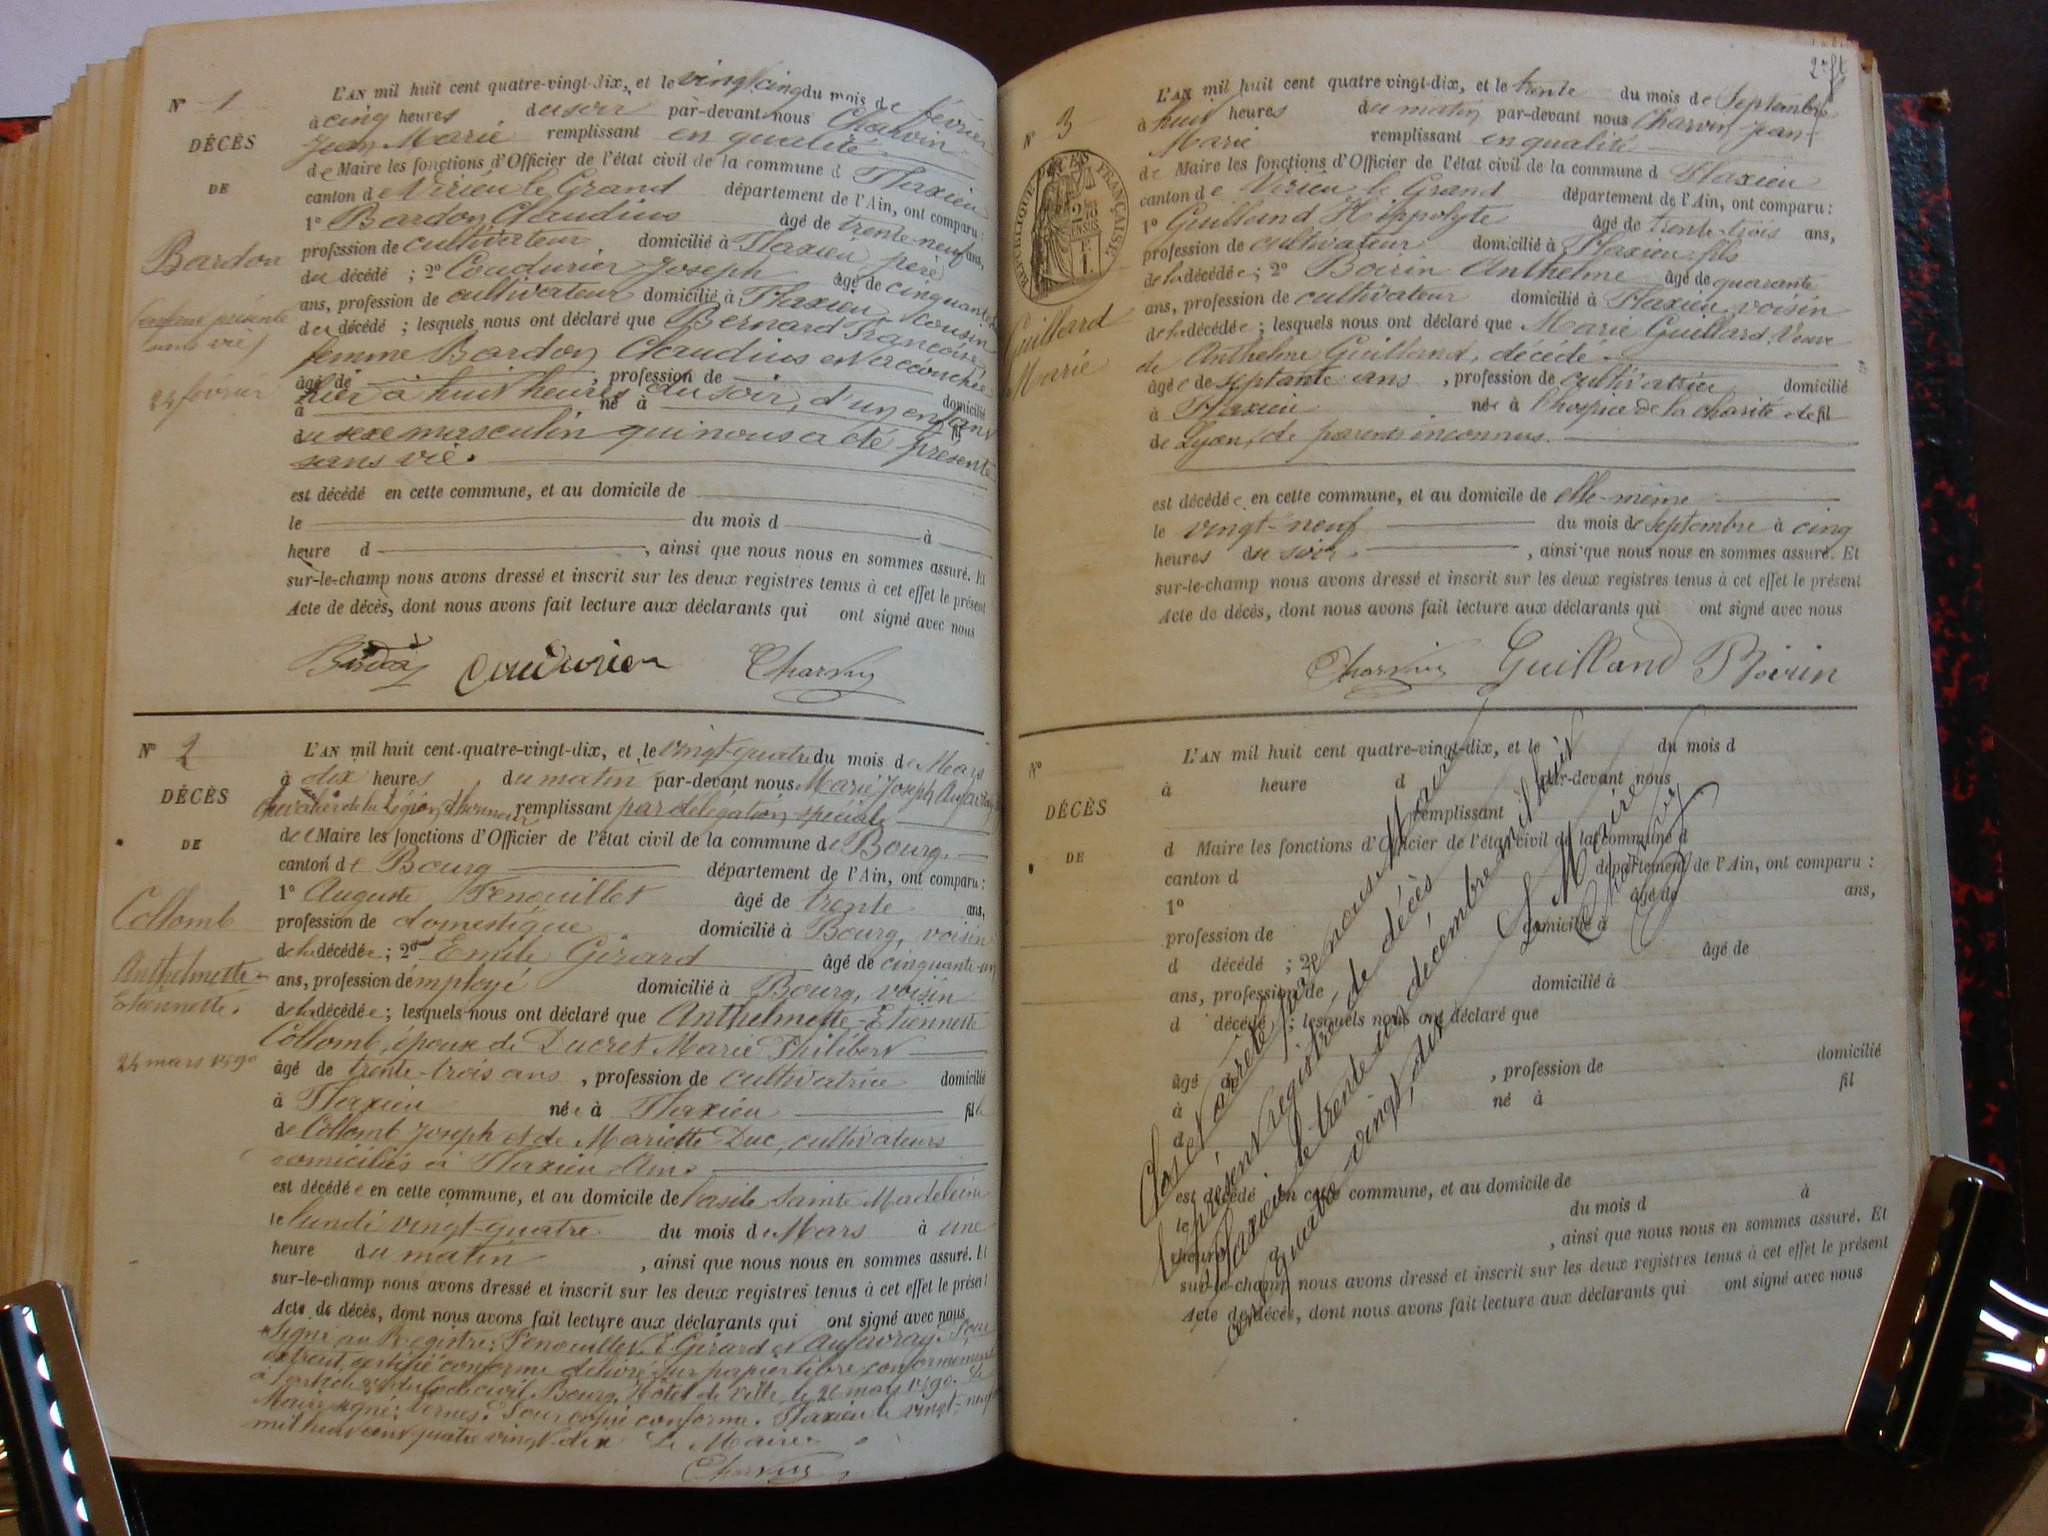 N° 1
DÉCÈS
DE
Bardon
(enfant présenté
sans vie)
24 février
L'AN mil huit cent quatre-vingt-dix, et le vingt cinq du mois de février
à cinq heures du soir par-devant nous Charvin
Jean Marie remplissant en qualité
de Maire les fonctions d'Officier de l'état civil de la commune d Flaxieu
canton de Virieu le Grand département de l'Ain, ont comparu :
1° Bardon Claudius âgé de trente-neuf ans,
profession de cultivateur domicilié à Flaxieu père
du décédé ; 2° Coudurier Joseph âgé de cinquante
ans, profession de cultivateur domicilié à Flaxieu, cousin
du décédé ; lesquels nous ont déclaré que Bernard Françoise,
femme Bardon Claudius est accouchée
âgé de , profession de domicilié
hier à huit heures du soir, d'un enfant
à né à fil
du sexe masculin qui nous a été présenté
sans vie.
est décédé en cette commune, et au domicile de
le du mois d à
heure d , ainsi que nous nous en sommes assuré. Et
sur-le-champ nous avons dressé et inscrit sur les deux registres tenus à cet effet le présent
Acte de décès, dont nous avons fait lecture aux déclarants qui ont signé avec nous
Coudurier Charvin
N° 2
DÉCÈS
DE
Collomb
Anthelmette-
Etiennette.
24 mars 1890
L'AN mil huit cent-quatre-vingt-dix, et le vingt-quatre du mois de Mars
à dix heures du matin par-devant nous Marie Joseph Aufavray
chevalier de la Légion d'honneur remplissant par délégation spéciale
de Maire les fonctions d'Officier de l'état civil de la commune de Bourg.
canton de Bourg département de l'Ain, ont comparu :
1° Auguste Fenouillet âgé de trente ans,
profession de domestique domicilié à Bourg, voisin
de la décédée ; 2° Emile Girard âgé de cinquante-un
ans, profession d'employé domicilié à Bourg, voisin
de la décédée ; lesquels nous ont déclaré que Anthelmette-Etiennette
Collomb, épouse de Ducret Marie Philibert
âgé de trente-trois ans , profession de cultivatrice domicilié
à Flaxieu née à Flaxieu fille
de Collomb Joseph et de Mariette Duc, cultivateurs
domiciliés à Flaxieu Ain.
est décédée en cette commune, et au domicile de l'asile Sainte Madeleine
le lundi vingt-quatre du mois de Mars à une
heure du matin , ainsi que nous nous en sommes assuré. Et
sur-le-champ nous avons dressé et inscrit sur les deux registres tenus à cet effet le présent
Acte de décès, dont nous avons fait lecture aux déclarants qui ont signé avec nous
Signé au Registre: Fenouillet, E. Girard et Aufavray. Pour
extrait certifié conforme délivré sur papier libre conformément
à l'article du Code civil. Bourg, Hôtel de Ville le 26 mars 1890. Le
Maire signé: Vernes. Pour copie conforme. Flaxieu le vingt-neuf
mil huit cent quatre vingt-dix Le Maire
Charvin
2e ft
N° 3
RÉPUBLIQUE FRANÇAISE
Guillard
Marie
L'AN mil huit cent quatre vingt-dix, et le trente du mois de Septembre
à huit heures du matin par-devant nous Charvin Jean-
Marie remplissant en qualité
de Maire les fonctions d'Officier de l'état civil de la commune d Flaxieu
canton de Virieu le Grand département de l'Ain, ont comparu :
1° Guilland Hippolyte âgé de trente-trois ans,
profession de cultivateur domicilié à Flaxieu fils
de la décédée ; 2° Boirin Anthelme âgé de quarante
ans, profession de cultivateur domicilié à Flaxieu, voisin
de la décédée ; lesquels nous ont déclaré que Marie Guillard, Veuve
de Anthelme Guilland, décédé.
âgée de septante ans , profession de cultivatrice domicilié
à Flaxieu née à l'hospice de la charité de fil
de Lyon, de parents inconnus.
est décédée en cette commune, et au domicile de elle-même
le vingt-neuf du mois de Septembre à cinq
heures du soir. , ainsi que nous nous en sommes assuré. Et
sur-le-champ nous avons dressé et inscrit sur les deux registres tenus à cet effet le présent
Acte de décès, dont nous avons fait lecture aux déclarants qui ont signé avec nous
Charvin Guilland Boirin
N°
DÉCÈS
DE
L'AN mil huit cent quatre-vingt-dix, et le du mois d
à heure d par-devant nous
remplissant
d Maire les fonctions d'Officier de l'état civil de la commune d
canton d département de l'Ain, ont comparu :
1° âgé de ans,
profession de domicilié à
d décédé ; 2° âgé de
ans, profession de domicilié à
d décédé ; lesquels nous ont déclaré que
âgé de , profession de domicilié
à né à fil
d
est décédé en cette commune, et au domicile de
le du mois d à
heure , ainsi que nous nous en sommes assuré. Et
sur-le-champ nous avons dressé et inscrit sur les deux registres tenus à cet effet le présent
Acte de décès, dont nous avons fait lecture aux déclarants qui ont signé avec nous
Clos et arrêté par nous, Maire
le présent registre de décès
à Flaxieu le trente un décembre mil huit
cent quatre-vingt-dix
Le Maire
Charvin